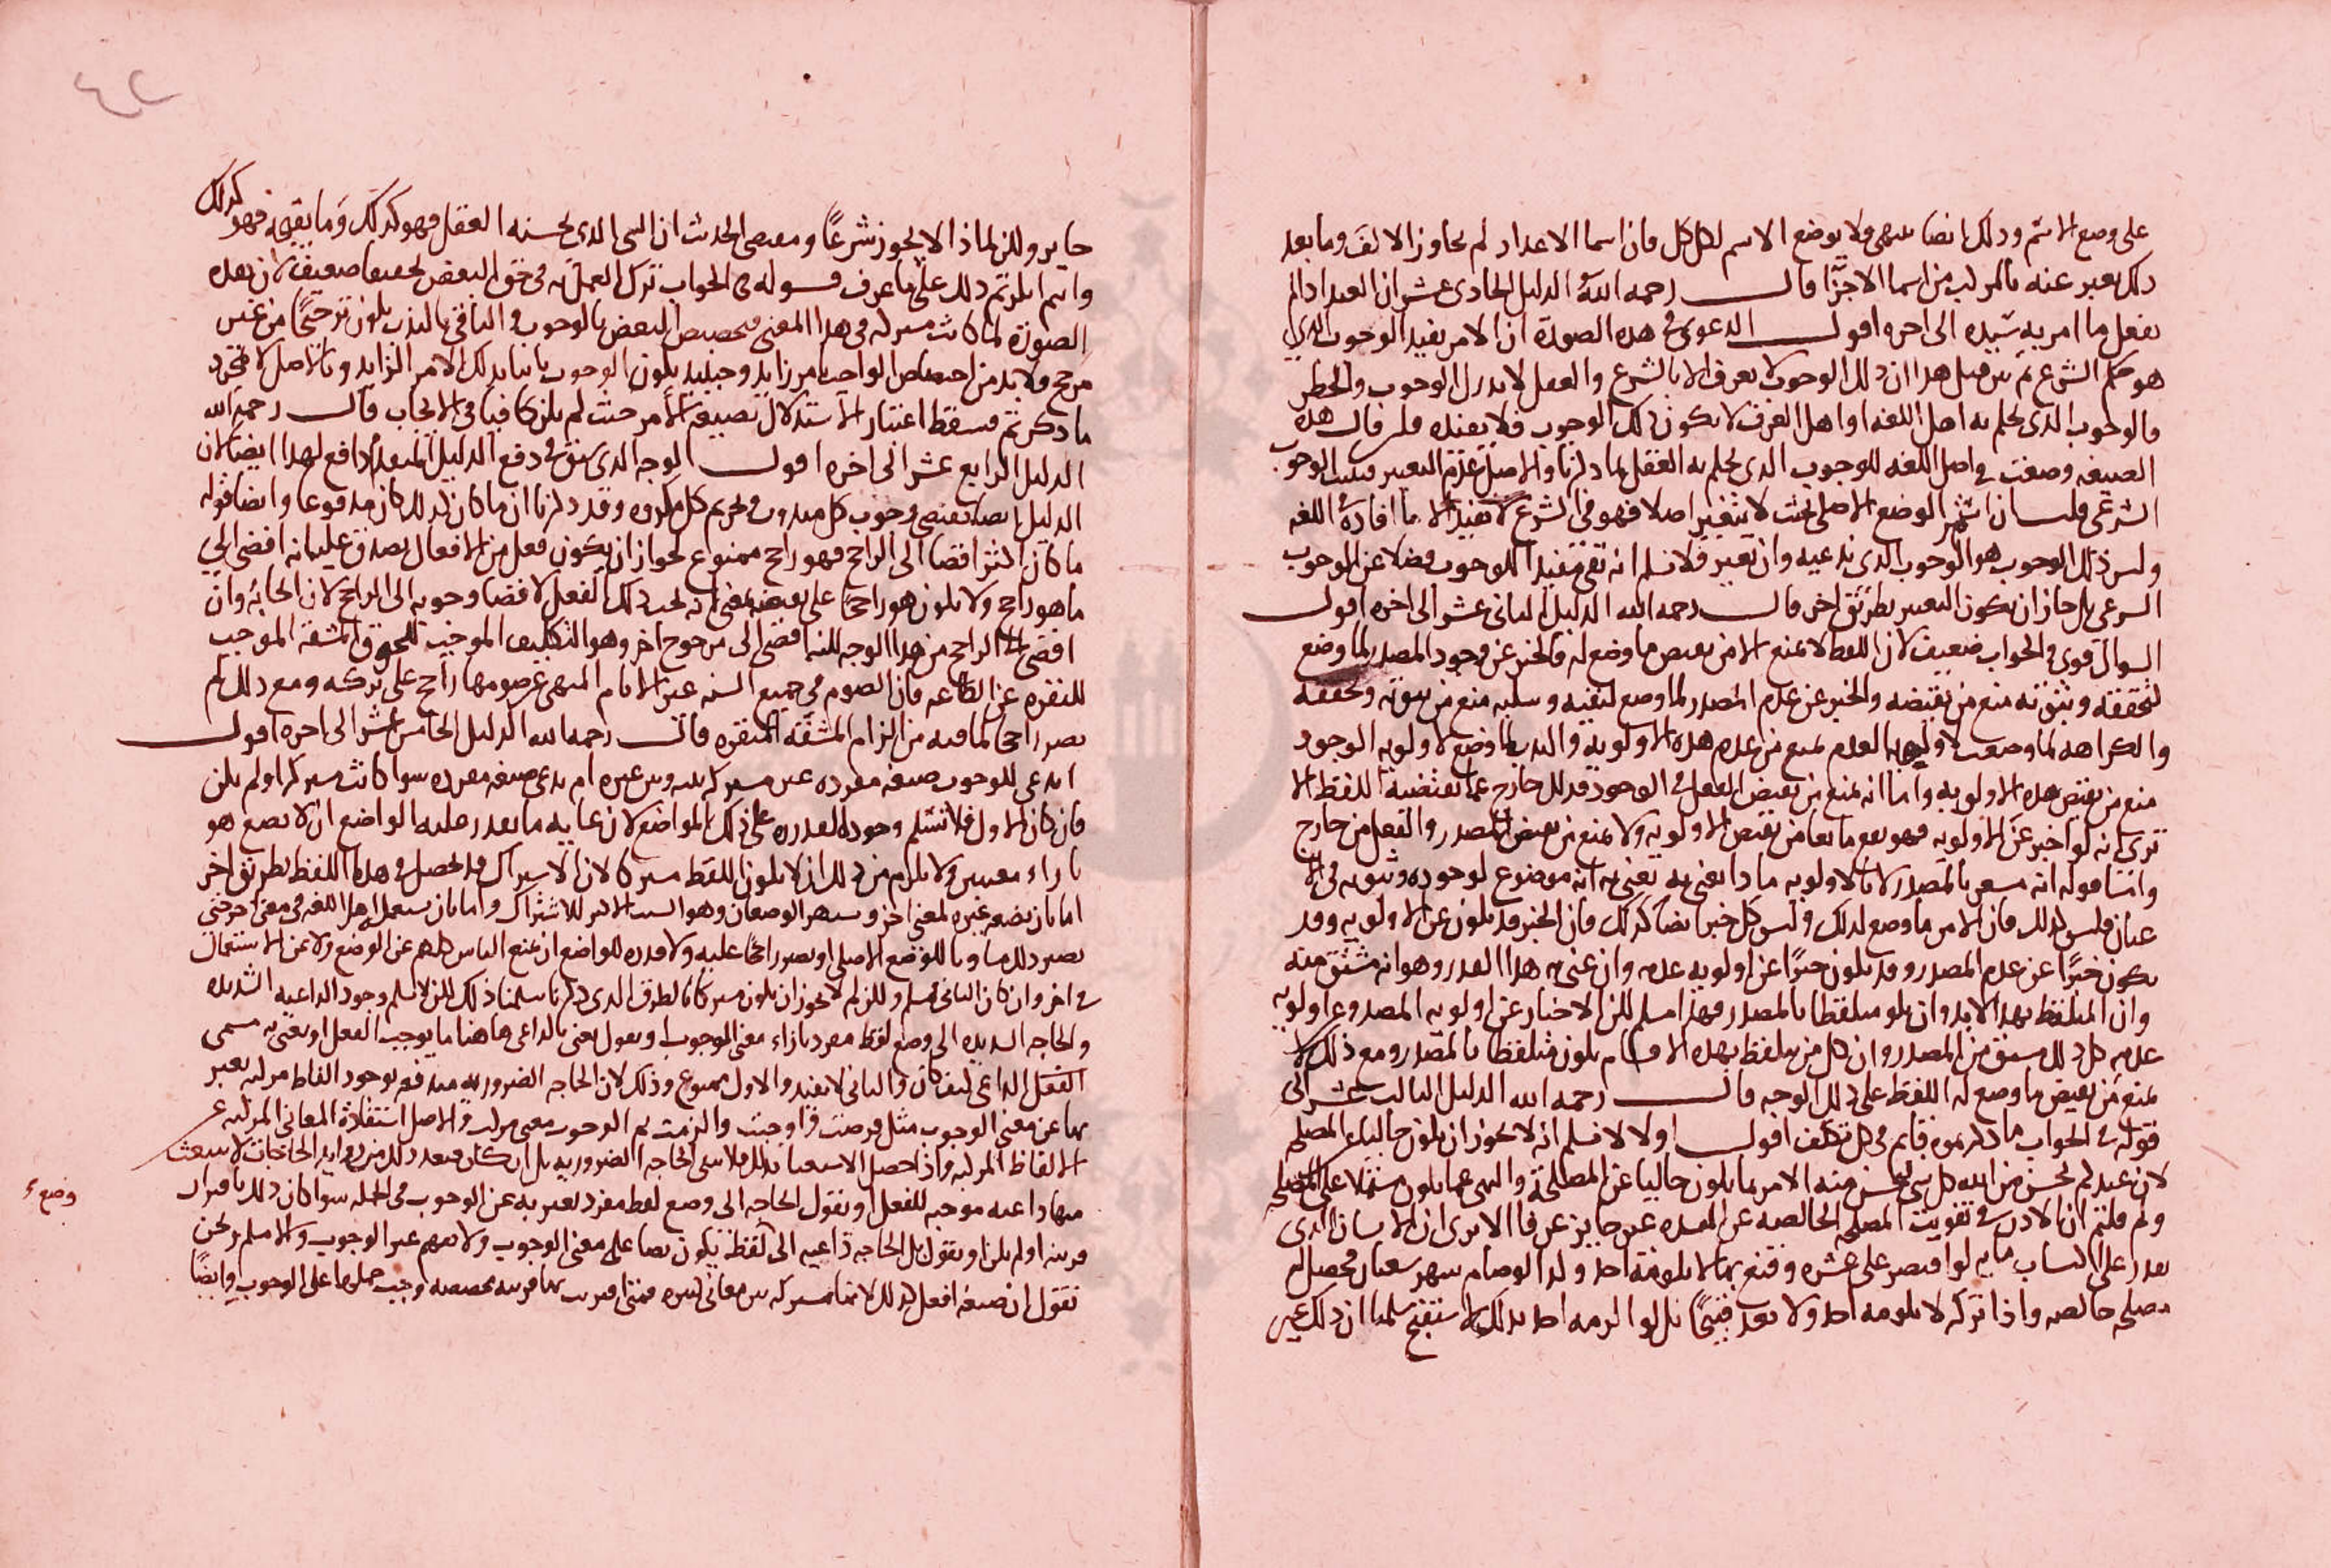 على وضع الاسم وذلك ايضا منتهى ولا يوضع الاسم لكل كل فان اسما الاعداد لم تجاوز الالف وما بعد
ذلك يعبر عنه بالمركب من اسما الاجزا قال رحمه الله الدليل الحادى عشر ان العبد اذا لم
يفعل ما امر به سيده الى اخره اقول الدعوى فى هذه الصورة ان الامر يفيد الوجوب الذى
هو حكم الشرع ثم بين قبل هذا ان ذلك الوجوب لا يعرف الا بالشرع والعقل لا يدرك الوجوب والحظر
والوجوب الذى يحكم به اهل اللغه او اهل العرف لا يكون ذلك الوجوب فلا يفيده فلم قال هذه
الصيغه وضعت فى اصل اللغه للوجوب الذى يحكم به العقل لما ذكرنا والاصل عدم التغيير فيثبت الوجوب
الشرعى قلت ان استمر الوضع الاصلى بحيث لا يتغير اصلا فهو فى الشرع لا يفيد الا ما افاده اللغه
وليس ذلك الوجوب هو الوجوب الذى ندعيه وان تغير فلا نسلم انه بقى مفيدا للوجوب فضلا عن الوجوب
الشرعى بل جاز ان يكون التغيير بطريق اخر قال رحمه الله الدليل الثانى عشر الى اخره اقول
السوال قوى والجواب ضعيف لان اللفظ لا يمنع الا من نقيض ما وضع له فالخبر عن وجود المصدر لما وضع
لتحققه وثبوته منع من نقيضه والخبر عن عدم المصدر لما وضع لنفيه وسلبه منع من ثبوته وتحققه
والكراهه لما وضعت لاولويه العدم تمنع من عدم هذه الاولويه والندب لما وضع لاولويه الوجود
منع من نقيض هذه الاولويه واما انه يمنع من نقيض الفعل فى الوجود فذلك خارج عما يقتضيه اللفظ الا
ترى انه لو اخبر عن الاولويه فهو يقع مانعا من نقيض الاولويه ولا يمنع من نقيض المصدر والفعل من خارج
وايضا قوله انه يشعر بالمصدر لا بالاولويه ماذا يعنى به يعنى به انه موضوع لوجوده وثبوته فى الا
عيان فليس كذلك فان الامر ما وضع لذلك وليس كل خبر ايضا كذلك فان الخبر قد يكون عن الاولويه وقد
يكون خبرا عن عدم المصدر وقد يكون خبرا عن اولويه عدمه وان عنى به هذا القدر وهو انه مشتق منه
وان المتلفظ بهذا لابد وان يكون متلفظا بالمصدر فهذا مسلم لكن الاخبار عن اولويه المصدر وعن اولويه
عدمه كل ذلك مشتق من المصدر وان كل من يتلفظ بهذه الاقسام يكون متلفظا بالمصدر ومع ذلك لا
يمنع من نقيض ما وضع له اللفظ على ذلك الوجه قال رحمه الله الدليل الثالث عشر الى
قوله فى الجواب ما ذكرتموه قايم فى كل تكلف اقول اولا لا نسلم انه لا يجوز ان يكون خاليا عن المصلحه
لان عندكم يحسن من الله كل شى يحسن منه الامر بما يكون خاليا عن المصلحة والنهى عما يكون مشتملا على المصلحه
ولم قلتم ان الاذن فى تفويت المصلحه الخالصه عن المفسده غير جايز عرفا الا ترى ان الانسان الذى
يقدر على اكتساب مايه لو اقتصر على عشره وقنع بها لا يلومه احد ولذا لو صام شهر شعبان فحصل له
مصلحه خالصه واذا تركه لا يلومه احد ولا يعد قبيحا بل لو الزمه احد بذلك استقبح سلمنا ان ذلك غير
جايز ولكن لماذا لا يجوز شرعا ومقتضى الحديث ان الشى الذى يحسنه العقل فهو كذلك وما يقبحه فهو كذلك
وانتم انكرتم ذلك على ما عرف قوله فى الجواب ترك العمل به فى حق البعض تخفيفا ضعيف لان هذه
الصورة لما كانت مشتركه فى هذا المعنى فتخصيص البعض بالوجوب والباقى بالندب يكون ترجيحا من غير
مرجح ولابد من اختصاص الواجب بامر زايد وحينئذ يكون الوجوب ثابتا بذلك الامر الزايد وبالاصل لا بمجرد
ما ذكرتم فسقط اعتبار الاستدلال بصيغه الامر حيث لم يكن كافيا فى الايجاب قال رحمه الله
الدليل الرابع عشر الى اخره اقول الوجه الذى سبق فى دفع الدليل المتقدم دافع لهذا ايضا لان
الدليل ايضا يقتضى وجوب كل مندوب وتحريم كل مكروه وقد ذكرنا ان ما كان كذلك كان مدفوعا وايضا قوله
ما كان اكثر افضا الى الراجح فهو راجح ممنوع لجواز ان يكون فعل من الافعال يصدق عليه انه افضى الى
ما هو راجح ولا يكون هو راجحا على نقيضه بمعنى انه يجب ذلك الفعل لافضا وجوبه الى الراجح لان ايجابه وان
افضى الى الراجح من هذا الوجه لكنه افضى الى مرجوح اخر وهو التكليف الموجب للحوق المشقة الموجب
للنفره عن الطاعه فان الصوم فى جميع السنه غير الايام المنهى عن صومها راجح على تركه ومع ذلك لم
يصر راجحا لما فيه من الزام المشقة المنفره قال رحمه الله الدليل الخامس عشر الى اخره اقول
اتدعى للوجوب صيغه مفرده غير مشتركه بينه وبين غيره ام تدعى صيغه مفرده سوا كانت مشتركه او لم يكن
فان كان الاول فلا نسلم وجود القدره على ذلك المواضع لان غايه ما يقدر عليه الواضع ان لا يضع هو
بازاء معنيين ولا يلزم من ذلك ان لا يكون اللفظ مشتركا لان الاشتراك قد يحصل فى هذا اللفظ بطريق اخر
اما بان يضعه غيره لمعنى اخر ويشتهر الوضعان وهو السبب الاكثر للاشتراك واما بان يستعمل اهل اللغه فى معنى اخر حتى
يصير ذلك مساويا للوضع الاصلى او يصير راجحا عليه ولا قدره للواضع ان يمنع الناس كلهم عن الوضع ولا عن الاستعمال
فى اخر وان كان الثانى فمسلم ولكن لم لا يجوز ان يكون مشتركا بالطرق الذى ذكرنا سلمنا ذلك لكن لا نسلم وجود الداعيه الشديده
والحاجه الشديده الى وضع لفظ مفرد بازاء معنى الوجوب ونقول يعنى بالداعى هاهنا ما يوجب الفعل او يعنى به مسمى
الفعل الداعى كيف كان والثانى لا يفيد والاول ممنوع وذلك لان الحاجه الضروريه مندفعه بوجود الفاظ مركبه يعبر
بها عن معنى الوجوب مثل فرضت واوجبت والزمت ثم الوجوب معنى مركب والاصل استفادة المعانى المركبه عن
الالفاظ المركبه واذا حصل الاستغنا بذلك فلا تبقى الحاجه الضروريه بل ان كان فبعد ذلك من زوايد الحاجات لا ينبعث
منها داعيه موجبه للفعل او نقول الحاجه الى وضع لفظ مفرد يعبر به عن الوجوب فى الجمله سوا كان ذلك باقتران
قرينه او لم يكن او نقول بل الحاجه داعيه الى لفظة يكون نصا على معنى الوجوب ولا يفهم غير الوجوب والا مسلم ونحن
نقول ان صيغه افعل كذلك لانها مشتركه بين معانى كثيره فمتى اقترنت بها قرينه مخصصه وجب حملها على الوجوب وايضا
وضع
٤٢